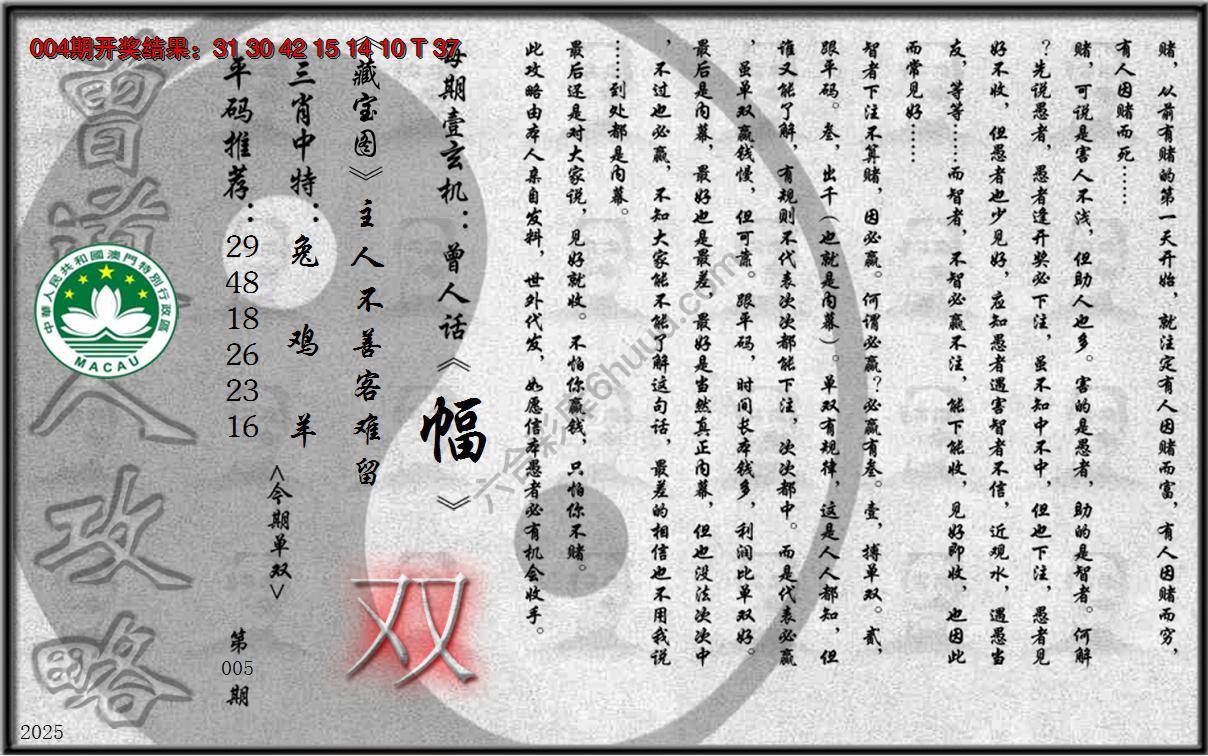 004期开奖结果：31 30 42 15 14 10 T 37
赌，从前有赌的第一天开始，就注定有人因赌而富，有人因赌而穷，
有人因赌而死……
赌，可说是害人不浅，但助人也多。害的是愚者，助的是智者。何解
？先说愚者，愚者逢开奖必下注，虽不知中不中，但也下注，愚者见
好不收，但愚者也少见好，应知愚者遇害智者不信，近观水，遇愚当
友，等等……而智者，不智必赢不注，能下能收，见好即收，也因此
而常见好……
智者下注不算赌，因必赢。何谓必赢？必赢有叁。壹，搏单双。贰，
跟平码。叁，出千（也就是内幕）。单双有规律，这是人人都知，但
谁又能了解，有规则不代表次次都能下注，次次都中。而是代表必赢
，虽单双赢钱慢，但可靠。跟平码，时间长本钱多，利润比单双好。
最后是内幕，最好也是最差，最好是当然真正内幕，但也没法次次中
，不过也必赢，不知大家能不能了解这句话，最差的相信也不用我说
……到处都是内幕。
最后还是对大家说，见好就收。不怕你赢钱，只怕你不赌。
此攻略由本人亲自发料，世外代发，如愿信本愚者必有机会收手。
每期壹玄机：曾人话《幅》
《藏宝图》主人不善客难留
双
三肖中特：兔 鸡 羊
<今期单双>
平码推荐：29 48 18 26 23 16
第005期
曾道人攻略
中華人民共和國澳門特別行政區
MACAU
2025
六合彩库6huuu.com